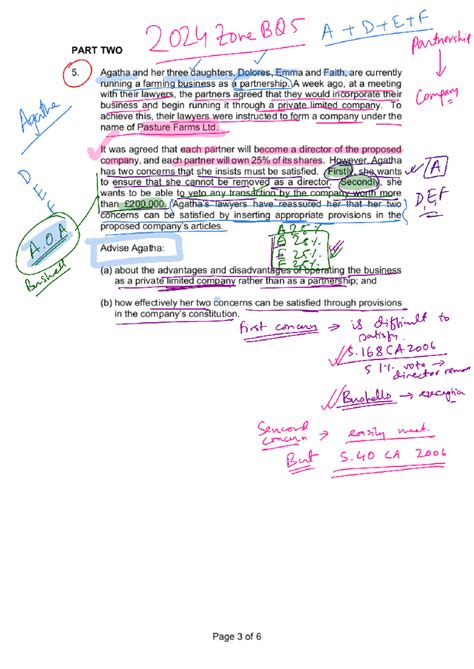 2024 Zone B Q5
A + D + E + F
Partnership
Company
PART TWO
5. Agatha and her three daughters, Dolores, Emma and Faith, are currently
running a farming business as a partnership. A week ago, at a meeting
with their lawyers, the partners agreed that they would incorporate their
business and begin running it through a private limited company. To
achieve this, their lawyers were instructed to form a company under the
name of Pasture Farms Ltd.
Agatha
D
E
F
A.O.A
Bushell
It was agreed that each partner will become a director of the proposed
company, and each partner will own 25% of its shares. However, Agatha
has two concerns that she insists must be satisfied. Firstly, she wants
to ensure that she cannot be removed as a director. Secondly, she
wants to be able to veto any transaction by the company worth more
than £200,000. Agatha's lawyers have reassured her that her two
concerns can be satisfied by inserting appropriate provisions in the
proposed company's articles.
A
D,E,F
A 25%
D 25%
E 25%
F 25%
Advise Agatha:
(a) about the advantages and disadvantages of operating the business
as a private limited company rather than as a partnership; and
(b) how effectively her two concerns can be satisfied through provisions
in the company's constitution.
First concern → is difficult to
satisfy.
S.168 CA 2006
51% vote →
director remove
Bushells → exception
Second
concern → easily meet.
But S.40 CA 2006
Page 3 of 6